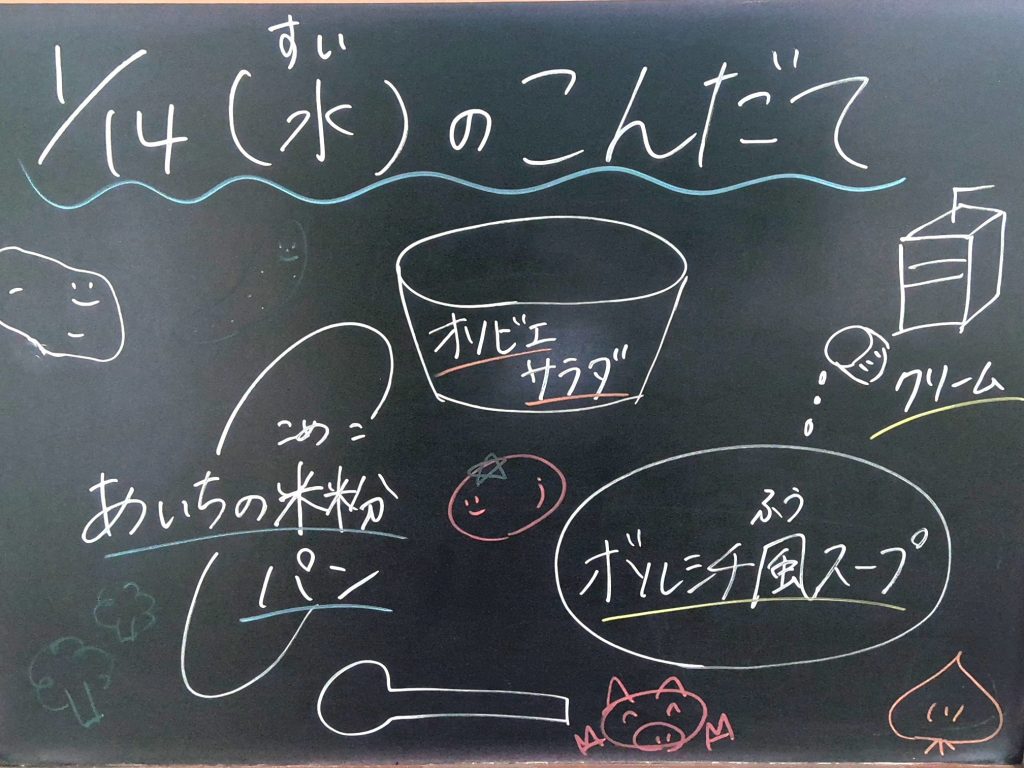 すい
1/14(水)のこんだて
オリビエ
サラダ
クリーム
こめこ
あいちの米粉
パン
ふう
ボルシチ風スープ